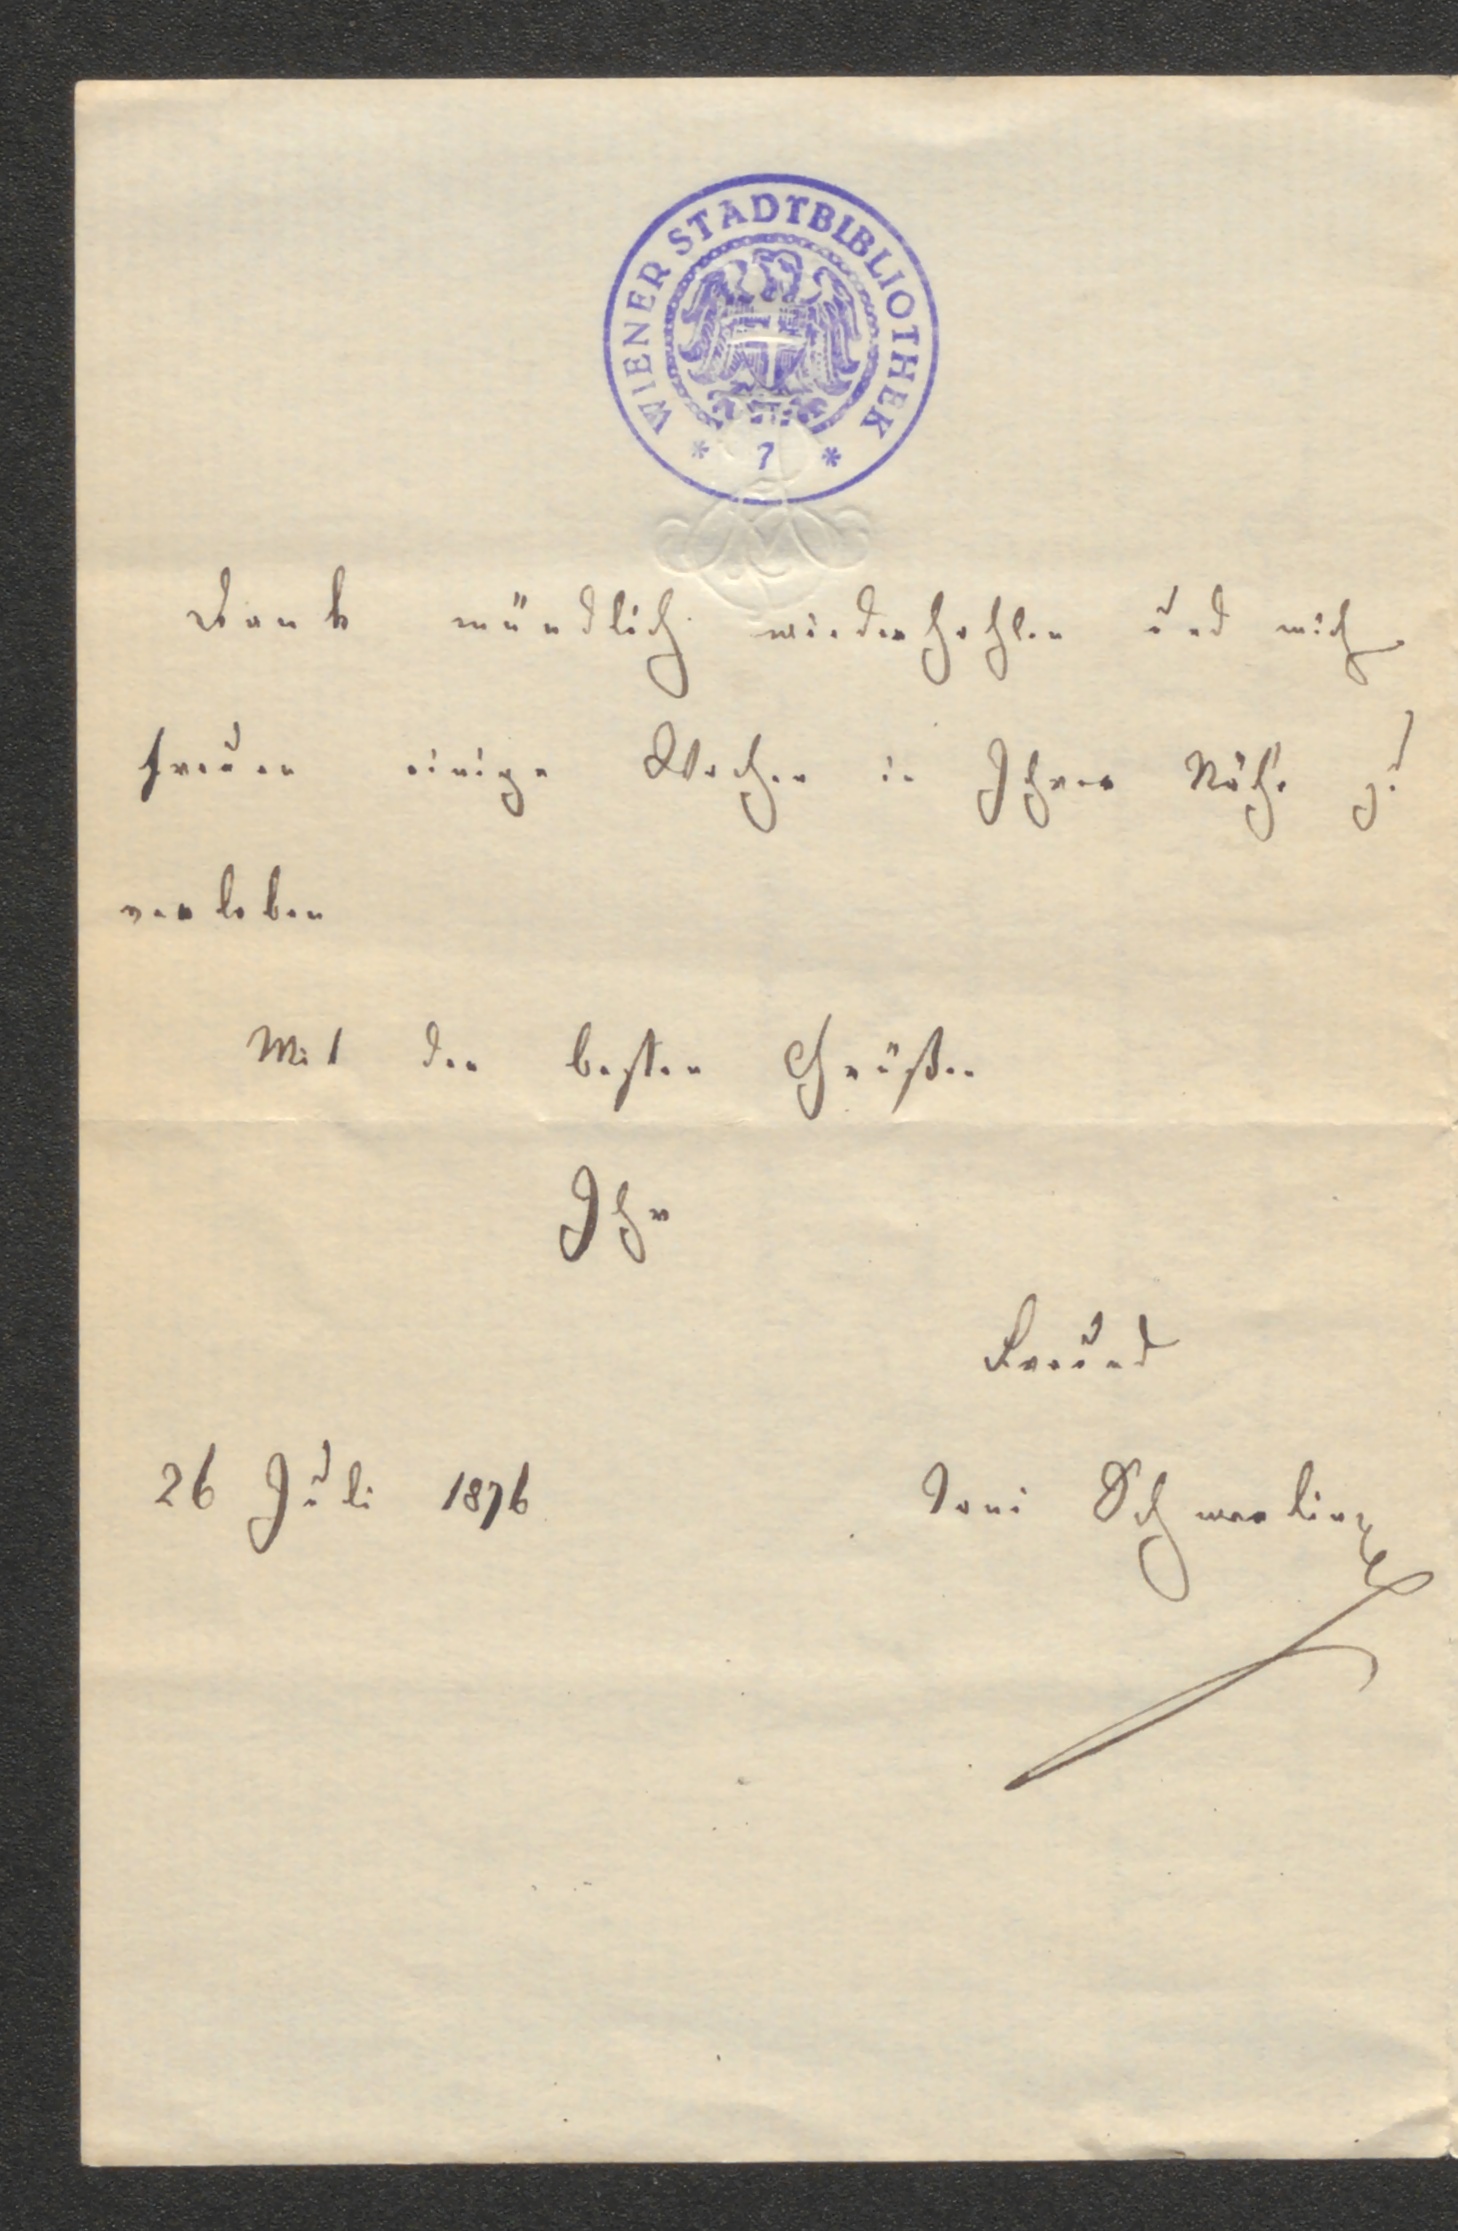 WIENER STADTBIBLIOTHEK
* 7 *
Dank mündlich wiederhohlen und mich
freuen einige Wochen in Ihrer Nähe zu
verleben
Mit den besten Grüßen
Ihr
Freund
26 Juli 1876 Toni Schmerling